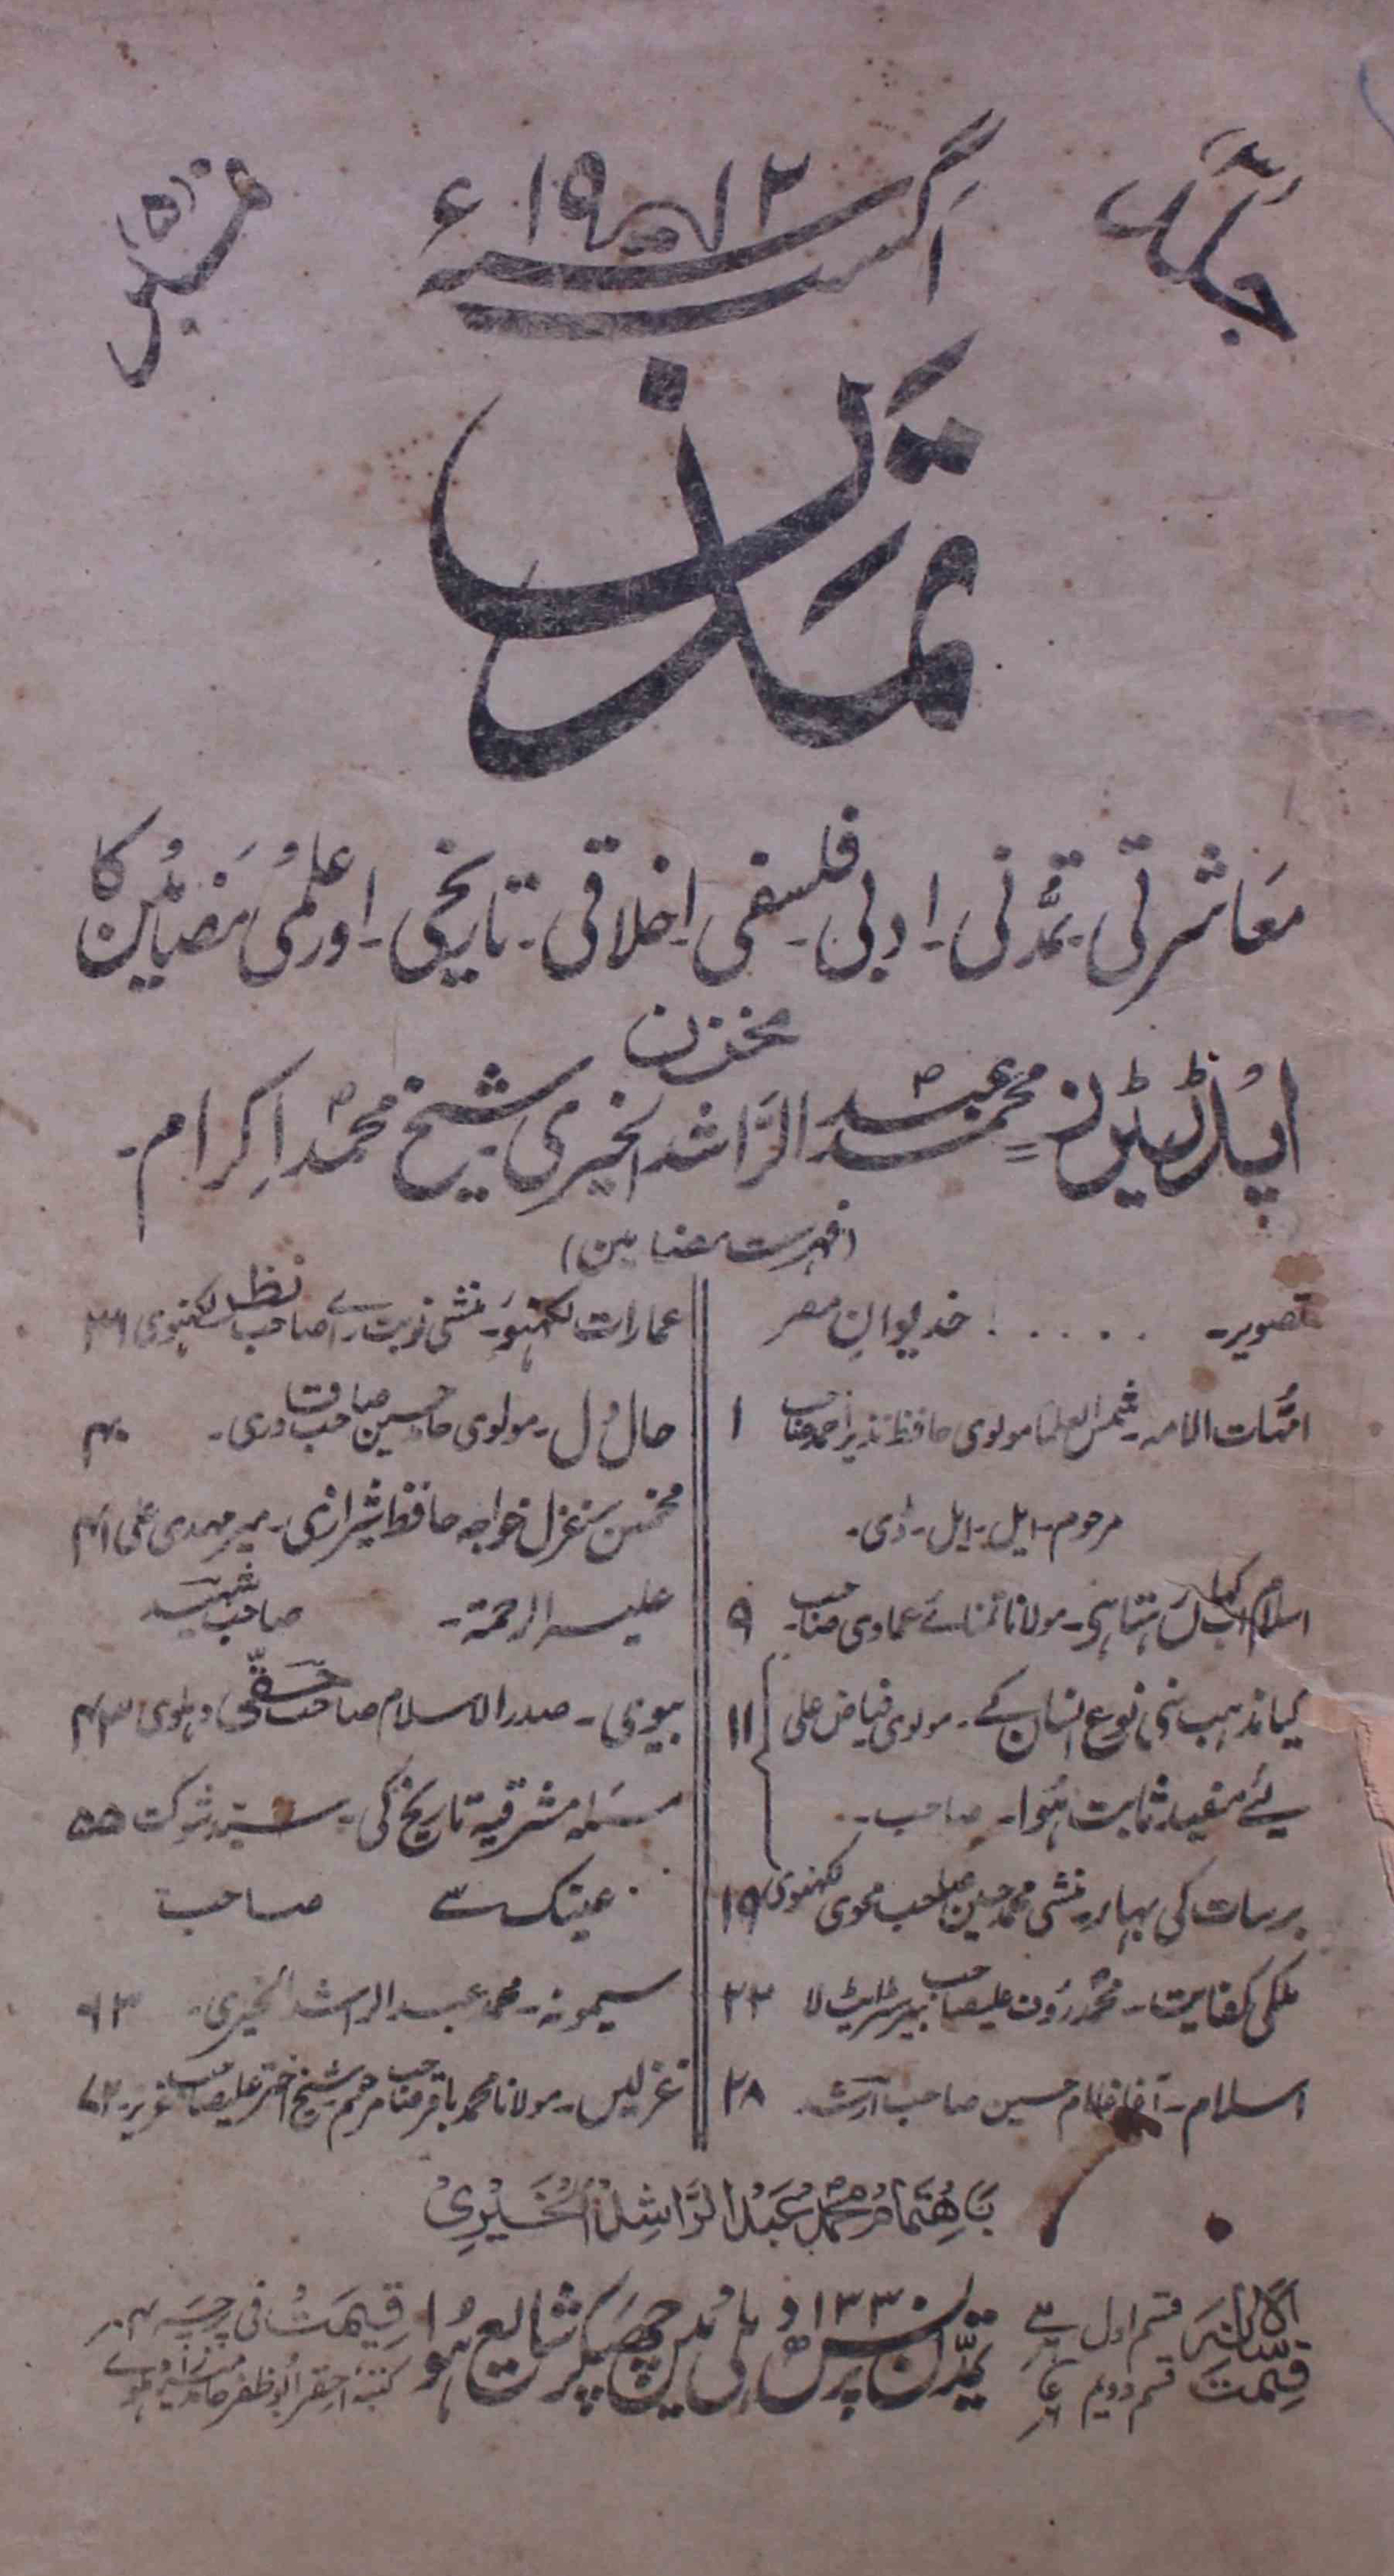 جلد ۳
اگست سنہ ۱۹۱۲ء
نمبر (۵)
تمدن
معاشرتی۔ تمدنی۔ ادبی۔ فلسفی۔ اخلاقی۔ تاریخی۔ اور علمی مضامین کا
مخزن
ایڈیٹرن محمد عبد الراشد الخیری شیخ محمد اکرام۔
(فہرست مضامین)
تصویر۔ . . . . . خدیوانِ مصر
امّہات الامہ۔ شمس العلما مولوی حافظ نذیر احمد صاحب ۱
مرحوم۔ ایل۔ ایل۔ ڈی۔
اسلام کہتا ہی۔ مولانا تمنائے عمادی صاحب ۹
کیا مذہب بنی نوع انسان کے۔ مولوی فیاض علی ۱۱
لئے مفید ثابت ہُوا۔ صاحب۔
برسات کی بہار۔ منشی محمد حسین صاحب محوی لکھنوی ۱۹
ملکی کفایت۔ محمد رؤن علیصاحب بیرسٹرایٹ لا ۲۲
اسلام۔ آغا غلام حسین صاحب ارشد ۲۸
عمارات لکھنؤ۔ منشی نوبت رائے صاحب نظر لکھنوی ۳۶
حال دل۔ مولوی حامد حسین صاحب قادری۔ ۴۰
مخمس بر غزل خواجہ حافظ شیرازی۔ میر مہدی علی ۴۱
علیہ الرحمۃ۔ صاحب شہید
بیوی۔ صدر الاسلام صاحب حقی دہلوی ۴۳
مسئلہ مشرقیہ تاریخ کی۔ سید شوکت ۵۵
عینک سے صاحب
سیمونہ۔ محمد عبد الراشد الخیری۔ ۶۳
غزلیں۔ مولانا محمد باقر صاحب مرحوم شیخ اختر علیصاحب عزیز۔ ۷۲
باہتمام محمد عبد الراشد الخیری
سالانہ قیمت قسم اول قسم دویم
تمدّن پریس دہلی میں چھپکر شایع ہُوا ۱۳۳۰
قیمت فی پرچہ ۴؍
کتبہ احقر ابو ظفر